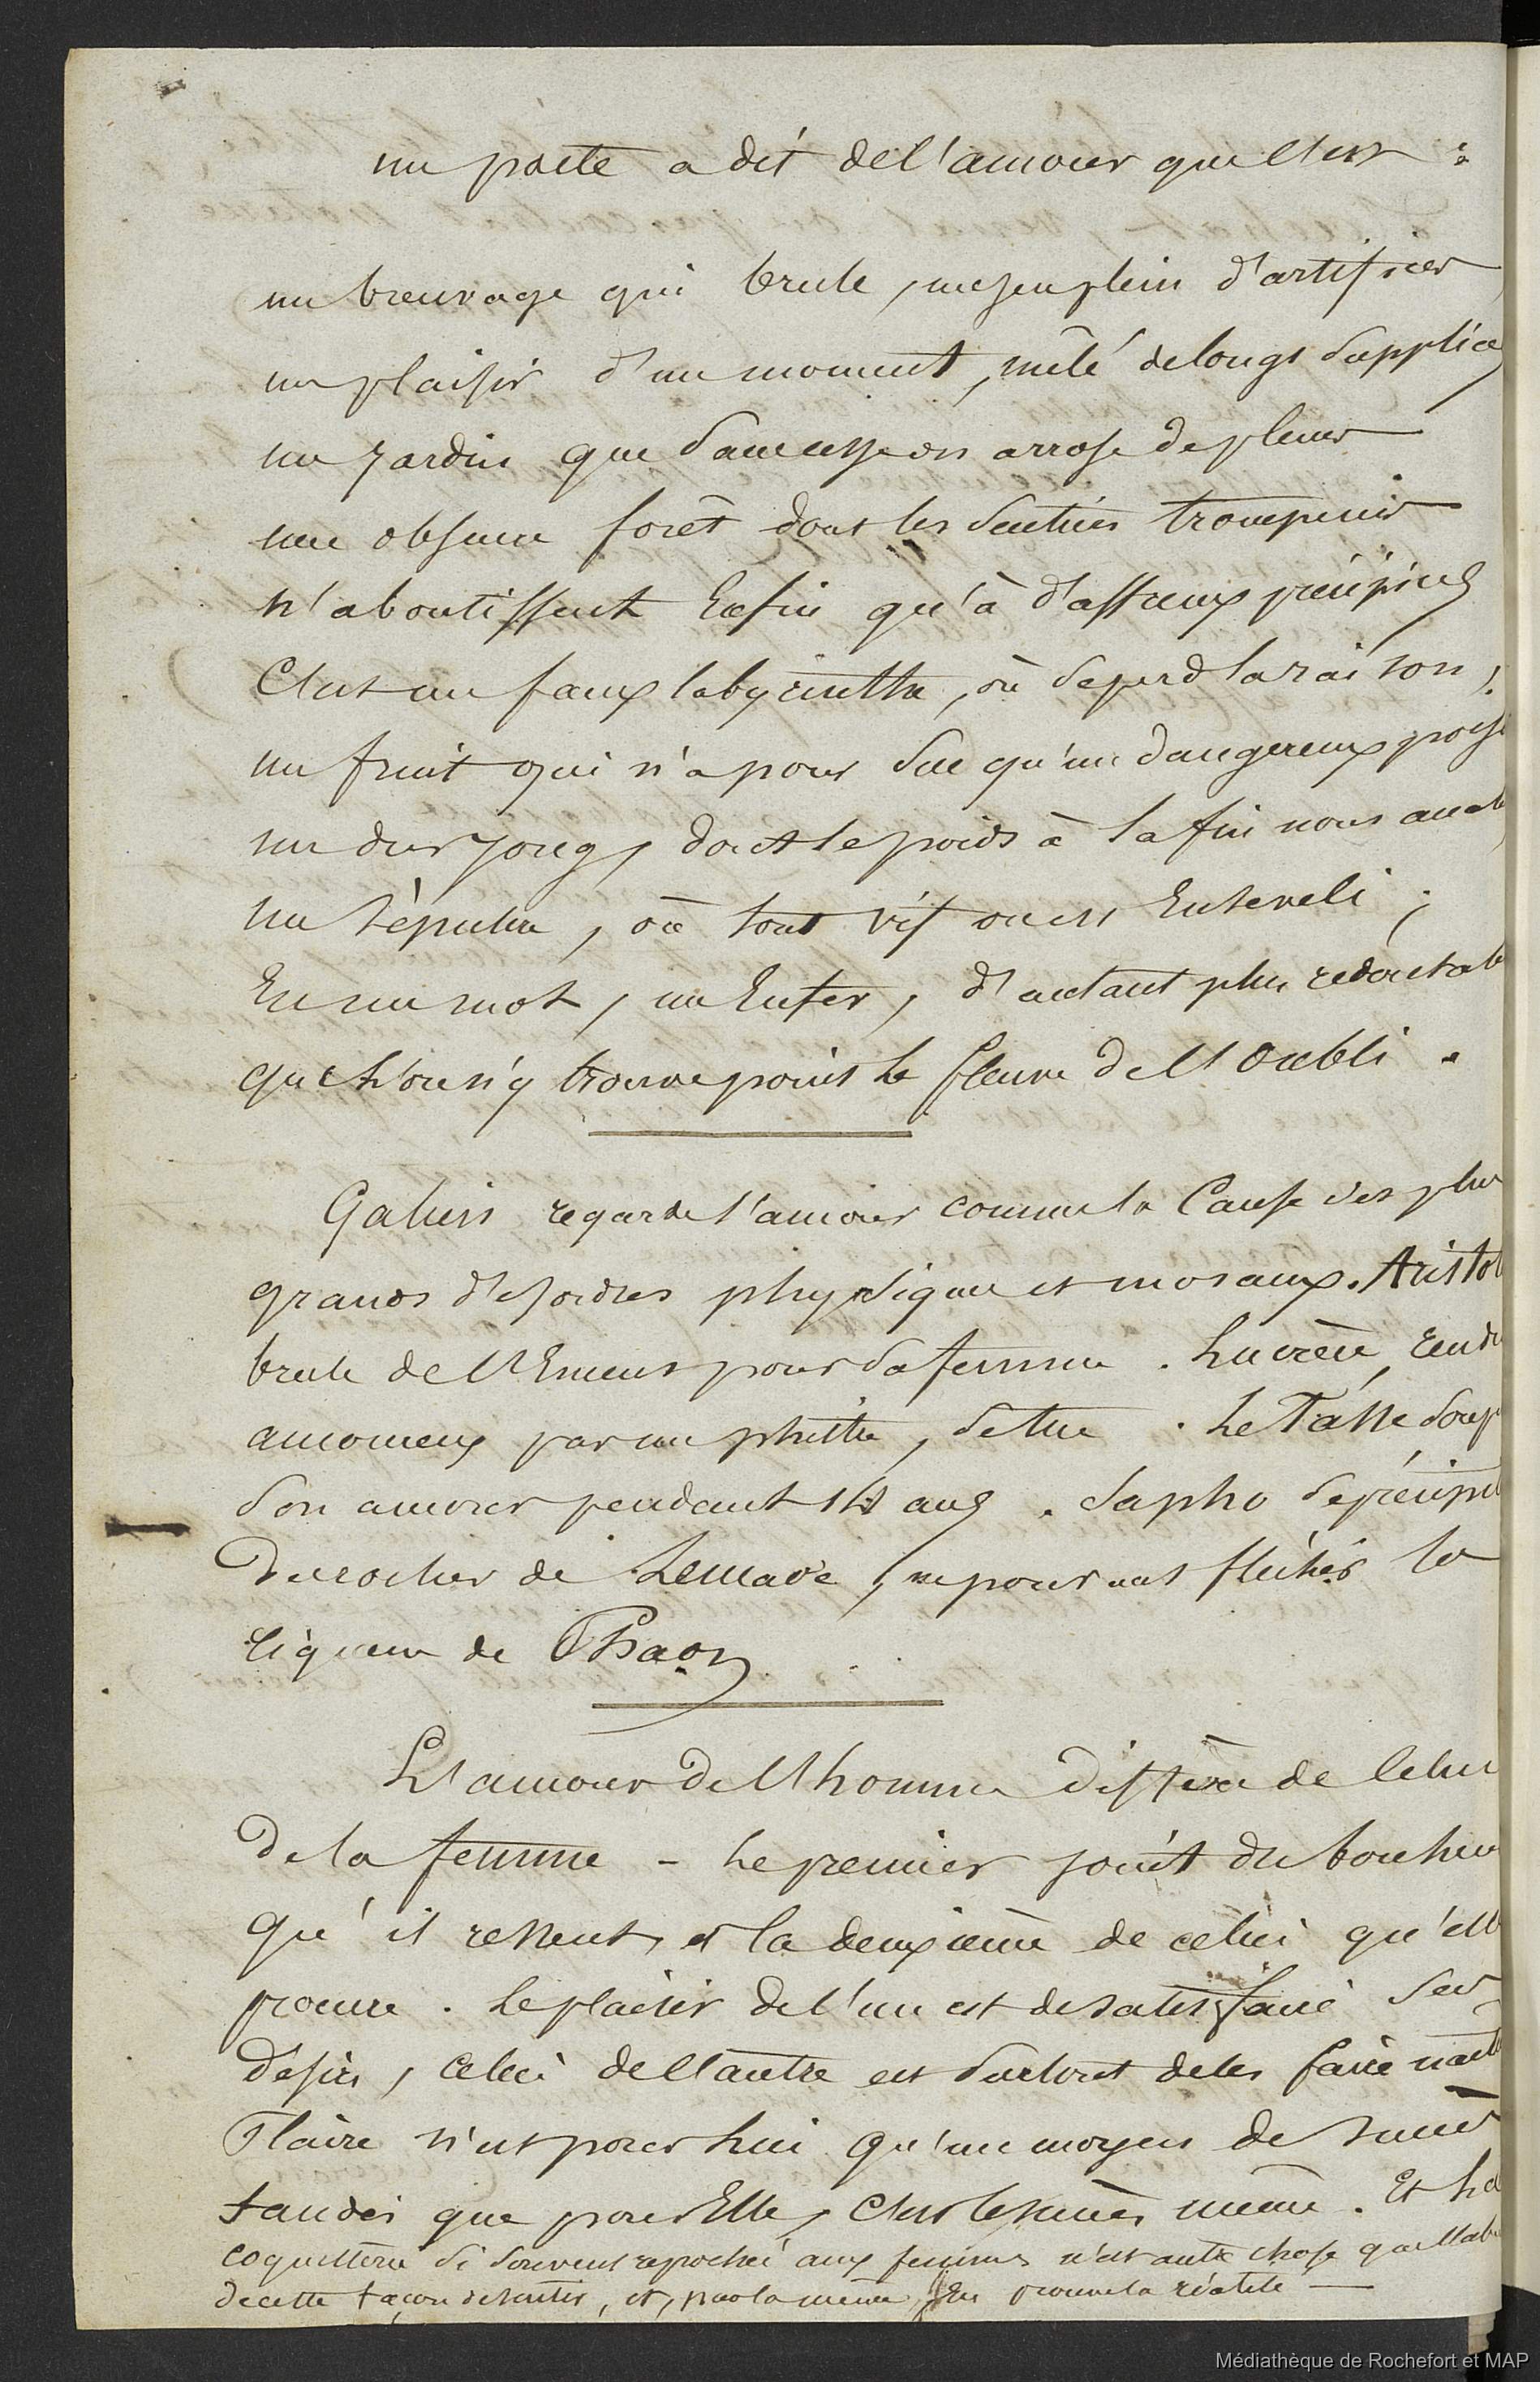 un poete a dit de l'amour que c'est :
un breuvage qui brule, un jeu plein d'artifices
un plaisir d'un moment, mêlé de longs supplices
un jardin que sans cesse on arrose de pleurs
une obscure forêt dont les sentiers trompeurs
n'aboutissent Enfin qu'à d'affreux précipices
C'est un faux labyrinthe, où se perd la raison,
un fruit qui n'a pour suc qu'un dangereux poiso
un dur joug, dont le poids à la fin nous accab
un sépulcre, où tout vif on est Enseveli ;
En un mot, un Enfer, d'autant plus redoutab
que l'on n'y trouve point le fleuve de l'Oubli .
Galien regarde l'amour comme la Cause des plus
grands désordres physique et moraux. Aristot
brule de l'Encens pour sa femme . Lucrèce, rendu
amoureux par un philtre, se tue . Le Tasse soup
son amour pendant 14 ans . Sapho se précipit
du rocher de Leucade, ne pouvant fléchir la
rigueur de Phaon
L'amour de l'homme diffère de celui
de la femme - Le premier jouit du bonheur
qu'il ressent, et la deuxième de celui qu'elle
procure . Le plaisir de l'un est de satisfaire ses
désirs, celui de l'autre est surtout de les faire naitr
Plaire n'est pour lui qu'un moyen de succès
tandis que pour Elle, c'est le succès même . Et la
coquetterie si souvent reprochée aux femmes n'est autre chose que l'ab
de cette façon de sentir, et, par la même, En prouve la réalité —
Médiathèque de Rochefort et MAP